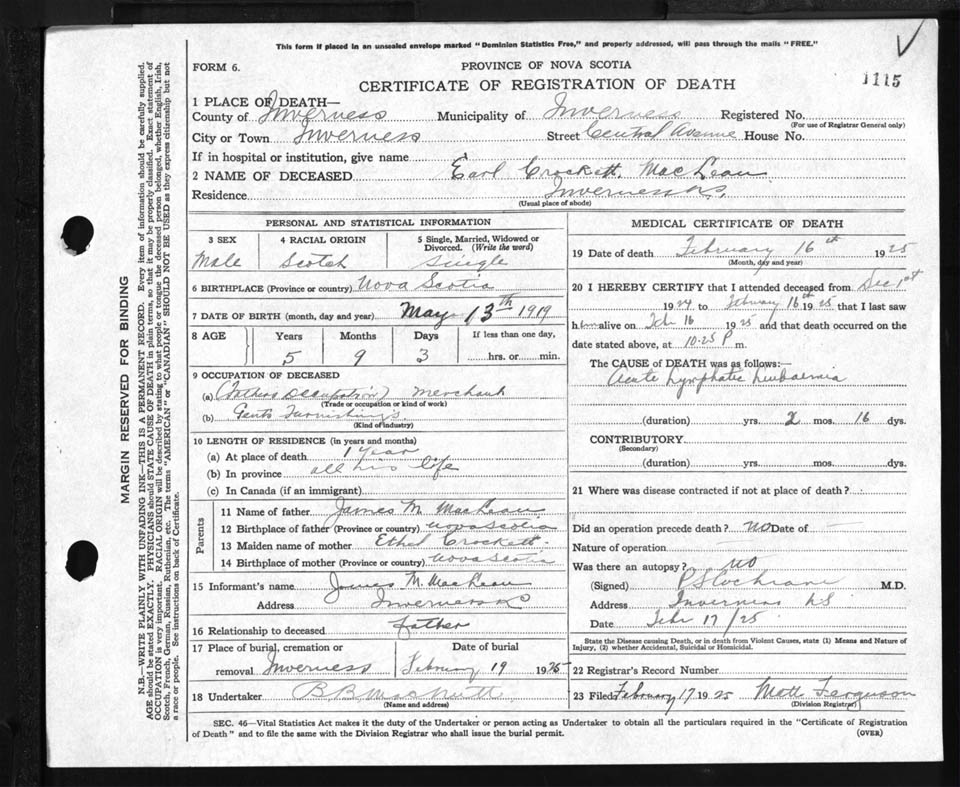 This form if placed in an unsealed envelope marked "Dominion Statistics Free," and properly addressed, will pass through the mails "FREE."
FORM 6.
PROVINCE OF NOVA SCOTIA
1115
CERTIFICATE OF REGISTRATION OF DEATH
1 PLACE OF DEATH—
County of Inverness Municipality of Inverness Registered No.
(For use of Registrar General only)
City or Town Inverness Street Central Avenue House No.
If in hospital or institution, give name
2 NAME OF DECEASED Earl Crockett MacLean
Residence Inverness N.S.
(Usual place of abode)
PERSONAL AND STATISTICAL INFORMATION
3 SEX 4 RACIAL ORIGIN 5 Single, Married, Widowed or Divorced. (Write the word)
Male Scotch Single
6 BIRTHPLACE (Province or country) Nova Scotia
7 DATE OF BIRTH (month, day and year) May 13th 1919
8 AGE Years Months Days If less than one day,
5 9 3 hrs. or min.
9 OCCUPATION OF DECEASED
(a) (Fathers Occupation) Merchant
(Trade or occupation or kind of work)
(b) Gents Furnishings
(Kind of industry)
10 LENGTH OF RESIDENCE (in years and months)
(a) At place of death 1 year
(b) In province all his life
(c) In Canada (if an immigrant)
Parents
11 Name of father James M. MacLean
12 Birthplace of father (Province or country) Nova Scotia
13 Maiden name of mother Ethel Crockett
14 Birthplace of mother (Province or country) Nova Scotia
15 Informant's name James M. MacLean
Address Inverness NS
16 Relationship to deceased father
17 Place of burial, cremation or Date of burial
removal Inverness February 19 1925
18 Undertaker B B MacNutt
(Name and address)
MEDICAL CERTIFICATE OF DEATH
19 Date of death February 16th 1925
(Month, day and year)
20 I HEREBY CERTIFY that I attended deceased from Dec 1st
1924 to February 16th 1925 that I last saw
him alive on Feb 16 1925 and that death occurred on
date stated above, at 10.25 P m.
The CAUSE of DEATH was as follows:—
Acute Lymphatic Leukaemia
(duration) yrs. 2 mos. 16 dys.
CONTRIBUTORY
(Secondary)
(duration) yrs. mos. dys.
21 Where was disease contracted if not at place of death?
Did an operation precede death? NO Date of —
Nature of operation
Was there an autopsy? NO
(Signed) P S Cochrane M.D.
Address Inverness NS
Date Feb 17/25
State the Disease causing Death, or in death from Violent Causes, state (1) Means and Nature of
Injury, (2) whether Accidental, Suicidal or Homicidal.
22 Registrar's Record Number
23 Filed February 17 1925 Mott Ferguson
(Division Registrar)
SEC. 46—Vital Statistics Act makes it the duty of the Undertaker or person acting as Undertaker to obtain all the particulars required in the "Certificate of Registration
of Death" and to file the same with the Division Registrar who shall issue the burial permit.
(OVER)
MARGIN RESERVED FOR BINDING
N.B.—WRITE PLAINLY WITH UNFADING INK—THIS IS A PERMANENT RECORD. Every item of information should be carefully supplied.
AGE should be stated EXACTLY. PHYSICIANS should STATE CAUSE OF DEATH in plain terms, so that it may be properly classified. Exact statement of
OCCUPATION is very important. RACIAL ORIGIN will be described by stating to what people or tongue the deceased person belonged, whether English, Irish,
Scotch, French, German, Russian, Ruthenian, etc. The terms "AMERICAN" or "CANADIAN" SHOULD NOT BE USED as they express citizenship but not
a race or people. See instructions on back of Certificate.